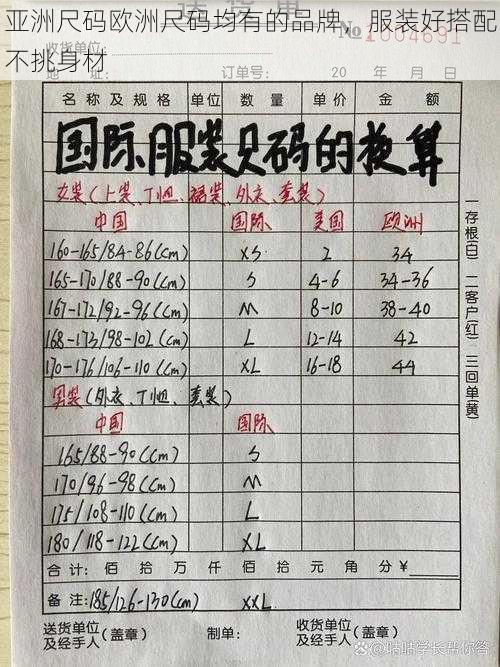 亚洲尺码欧洲尺码均有的品牌，服装好搭配
不挑身材
送货单
收货单位:
No 2004691
地址: 订单号: 20 年 月 日
名称及规格 单位 数量 单价 金额
国际服装尺码的换算
女装(上装、T恤、裙装、外衣、套装)
中国 国际 美国 欧洲
160-165/84-86(cm) XS 2 34
165-170/88-90(cm) S 4-6 34-36
167-172/92-96(cm) M 8-10 38-40
168-173/98-102(cm) L 12-14 42
170-176/106-110(cm) XL 16-18 44
男装(外衣、T恤、套装)
中国 国际
165/88-90(cm) S
170/96-98(cm) M
175/108-110(cm) L
180/118-122(cm) XL
合计: 佰 拾 万 仟 佰 拾 元 角 分 ¥
备注: 185/126-130(cm) XXL
送货单位及经手人(盖章) 制单: 收货单位及经手人(盖章)
一存根(白) 二客户(红) 三回单(黄)